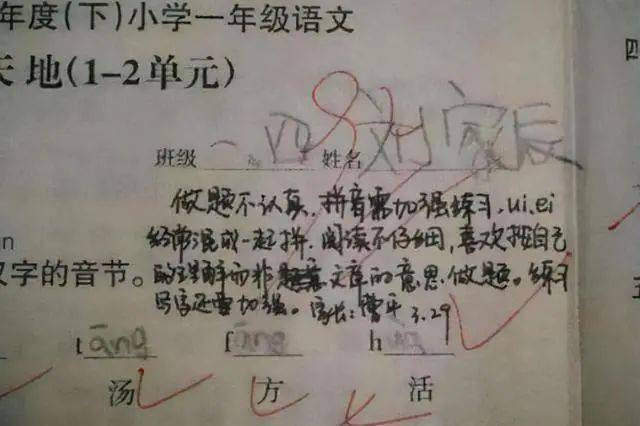 年度(下)小学一年级语文
天地(1-2单元)
四
班级 一.四 姓名 刘家辰
做题不认真,拼音需加强练习,ui.ei
经常混成一起拼,阅读不仔细,喜欢按自己
的理解而非文章的意思做题。练习
写字还要加强。家长:曹平 3.29
汉字的音节。
tāng fāng h
汤 方 活